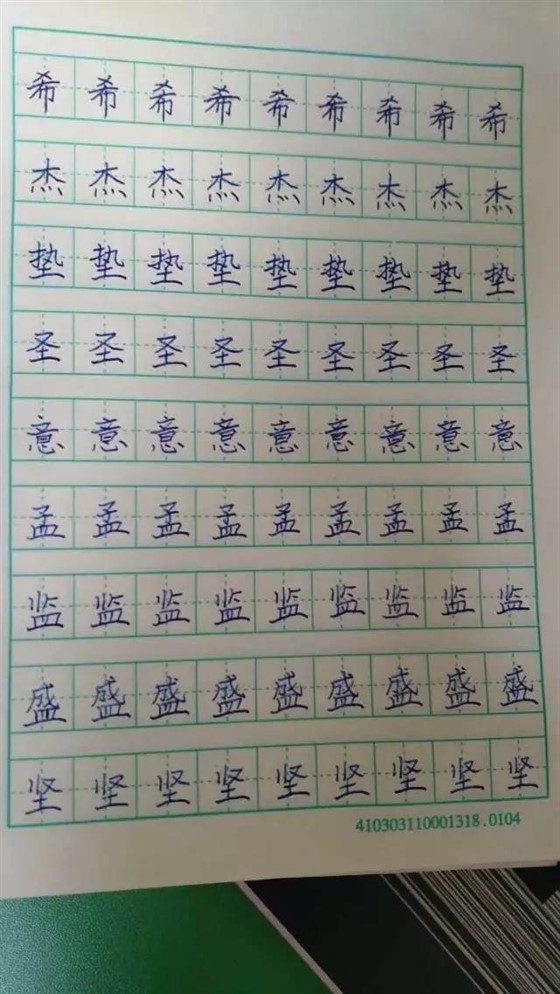 希希希希希希希希希
杰杰杰杰杰杰杰杰杰
垫垫垫垫垫垫垫垫垫
圣圣圣圣圣圣圣圣圣
意意意意意意意意意
孟孟孟孟孟孟孟孟孟
监监监监监监监监监
盛盛盛盛盛盛盛盛盛
坚坚坚坚坚坚坚坚坚
410303110001318.0104